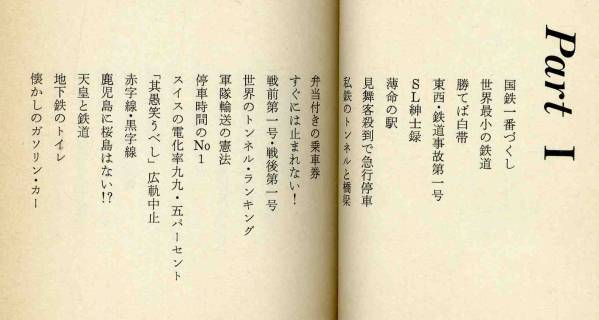 Part I
国鉄一番づくし
世界最小の鉄道
勝てば白帯
東西・鉄道事故第一号
SL紳士録
薄命の駅
見舞客殺到で急行停車
私鉄のトンネルと橋梁
弁当付きの乗車券
すぐには止まれない!
戦前第一号・戦後第一号
世界のトンネル・ランキング
軍隊輸送の憲法
停車時間のNo1
スイスの電化率九九・五パーセント
「其愚笑うべし」広軌中止
赤字線・黒字線
鹿児島に桜島はない!?
天皇と鉄道
地下鉄のトイレ
懐かしのガソリン・カー